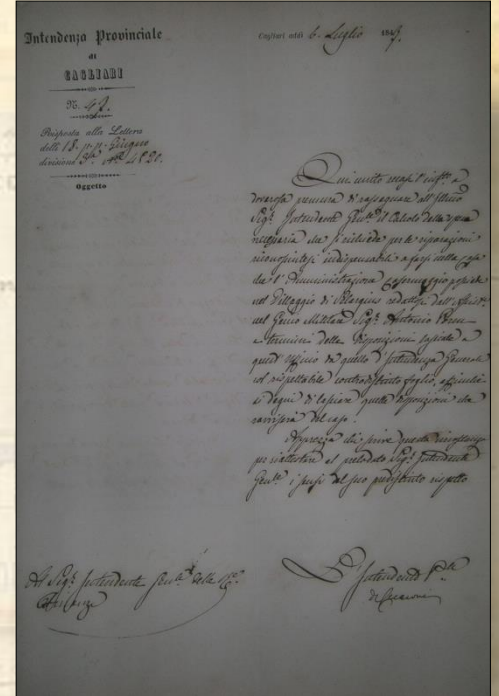 Intendenza Provinciale
di
CAGLIARI
N. 47.
Risposta alla Lettera
delli 18. p. p. Giugno
divisione 3ª. Nº 4820.
Oggetto
Cagliari addì 6. Luglio 1847.
Qui unito
doverosa premura di rassegnare all'Illmo
Sigr. Intendente Genle. il Calcolo della spesa
necessaria che si richiede per le riparazioni
indispensabili a farsi nella casa
da l'Amministrazione
nel Villaggio di Selargius redatto dall'
nel Genio Militare Sigr. Antonio
a termini della disposizione
quest'Uffizio da quello d'Intendenza Generale
col rispettabile controdistinto foglio, affinchè
si degni di lasciare quelle disposizioni che
ravviserà del caso.
chi scrive questa
per riattestare al prelodato Sigr. Intendente
Genle. i sensi del suo rispetto
L'Intendente Ple
Al Sigr. Intendente Genle. delle Re.
Finanze